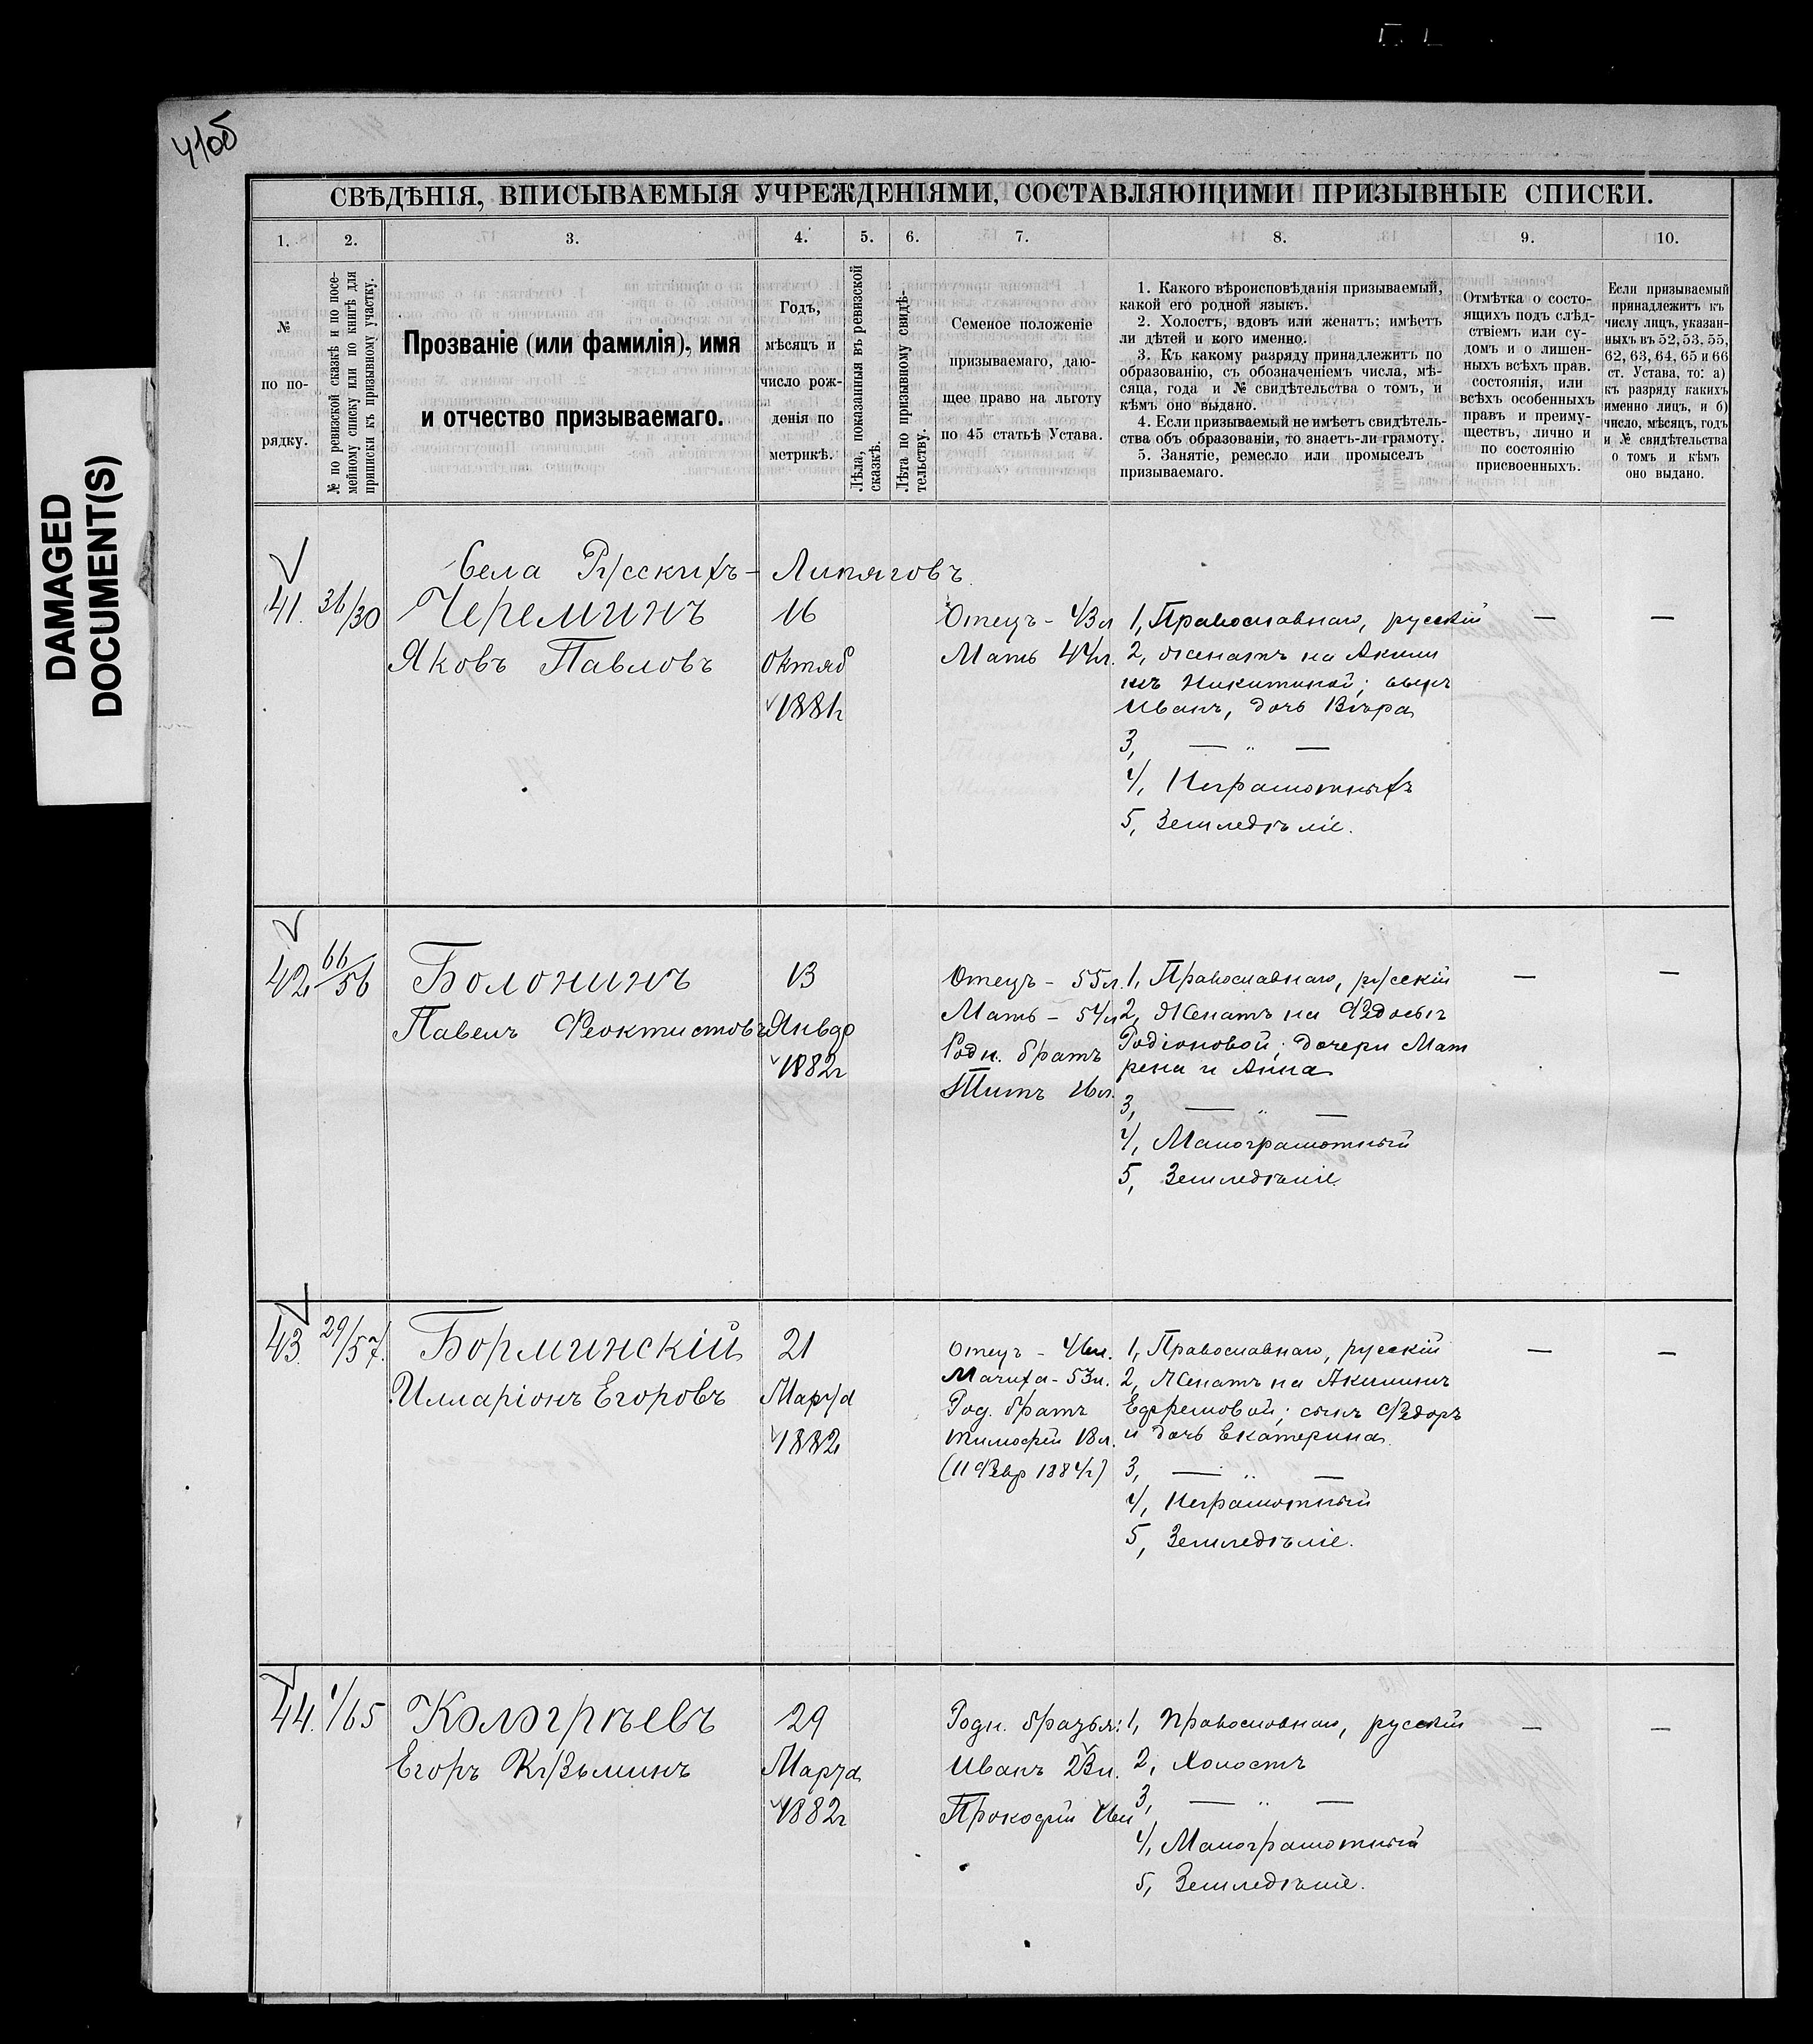 41об
DAMAGED
DOCUMENT(S)
СВѢДѢНІЯ, ВПИСЫВАЕМЫЯ УЧРЕЖДЕНІЯМИ, СОСТАВЛЯЮЩИМИ ПРИЗЫВНЫЕ СПИСКИ.
1. 2. 3. 4. 5. 6. 7. 8. 9. 10.
№
по по-
рядку.
№ по ревизской сказкѣ и по посе-
мейному списку или по книгѣ для
приписки къ призывному участку.
Прозваніе (или фамилія), имя
и отчество призываемаго.
Годъ,
мѣсяцъ и
число рож-
денія по
метрикѣ.
Лѣта, показанныя въ ревизской
сказкѣ.
Лѣта по призывному свидѣ-
тельству.
Семеное положеніе
призываемаго, даю-
щее право на льготу
по 45 статьѣ Устава.
1. Какого вѣроисповѣданія призываемый,
какой его родной языкъ.
2. Холостъ, вдовъ или женатъ; имѣетъ
ли дѣтей и кого именно.
3. Къ какому разряду принадлежитъ по
образованію, съ обозначеніемъ числа, мѣ-
сяца, года и № свидѣтельства о томъ, и
кѣмъ оно выдано.
4. Если призываемый не имѣетъ свидѣтель-
ства объ образованіи, то знаетъ-ли грамоту.
5. Занятіе, ремесло или промыселъ
призываемаго.
Отмѣтка о состо-
ящихъ подъ слѣд-
ствіемъ или су-
домъ и о лишен-
ныхъ всѣхъ прав.
состоянія, или
всѣхъ особенныхъ
правъ и преиму-
ществъ, лично и
по состоянію
присвоенныхъ.
Если призываемый
принадлежитъ къ
числу лицъ, указан-
ныхъ въ 52, 53, 55,
62, 63, 64, 65 и 66
ст. Устава, то: а)
къ разряду какихъ
именно лицъ, и б)
число, мѣсяцъ, годъ
и № свидѣтельства
о томъ и кѣмъ
оно выдано.
Села Русскихъ-Липяговъ
41. 36/30
Череминъ
Яковъ Павловъ
16
Октяб
1881г
Отецъ - 43л
Мать 44л.
1, Православнаго, русскій
2, Женатъ на Акили
нѣ Никитиной; сынъ
Иванъ, дочь Вѣра
3, — „ —
4, Неграмотный
5, Земледѣліе.
— —
42. 66/56
Болонинъ
Павелъ Феоктистовъ
13
Январ
1882г
Отецъ - 55л.
Мать - 54л
Родн. братъ
Титъ 16л.
1, Православнаго, русскій
2, Женатъ на Ѳедосьѣ
Родіоновой; дочери Мат
рена и Анна
3, — „ —
4, Малограмотный
5, Земледѣліе.
— —
43. 29/57.
Борминскій
Илларіонъ Егоровъ
21
Марта
1882
Отецъ - 46л.
Мачиха - 53л.
Род. братъ
Тимофей 18л.
(11 Февр 1884г)
1, Православнаго, русскій
2, Женатъ на Акилинѣ
Ефремовой; сынъ Ѳедоръ
и дочь Екатерина.
3, — „ —
4, Неграмотный
5, Земледѣліе.
— —
44. 1/65
Кологрѣевъ
Егоръ Кузьминъ
29
Марта
1882г
Родн. братья:
Иванъ 23л.
Прокофій 16л
1, Православнаго, русскій
2, Холостъ
3, — „ —
4, Малограмотный
5, Земледѣліе.
— —